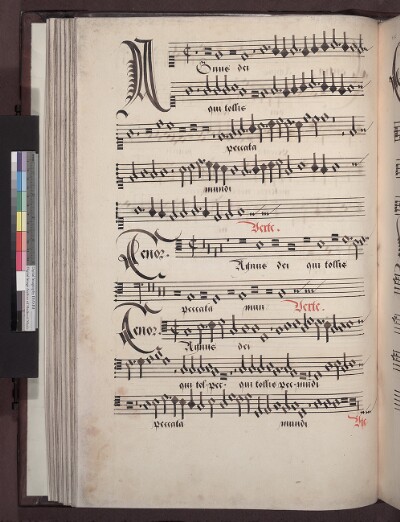 Agnus dei
qui tollis
peccata
mundi
Verte.
Tenor.
Agnus dei qui tollis
peccata mun Verte.
Tenor.
Agnus dei
qui tol pec qui tollis pec mundi
peccata mundi